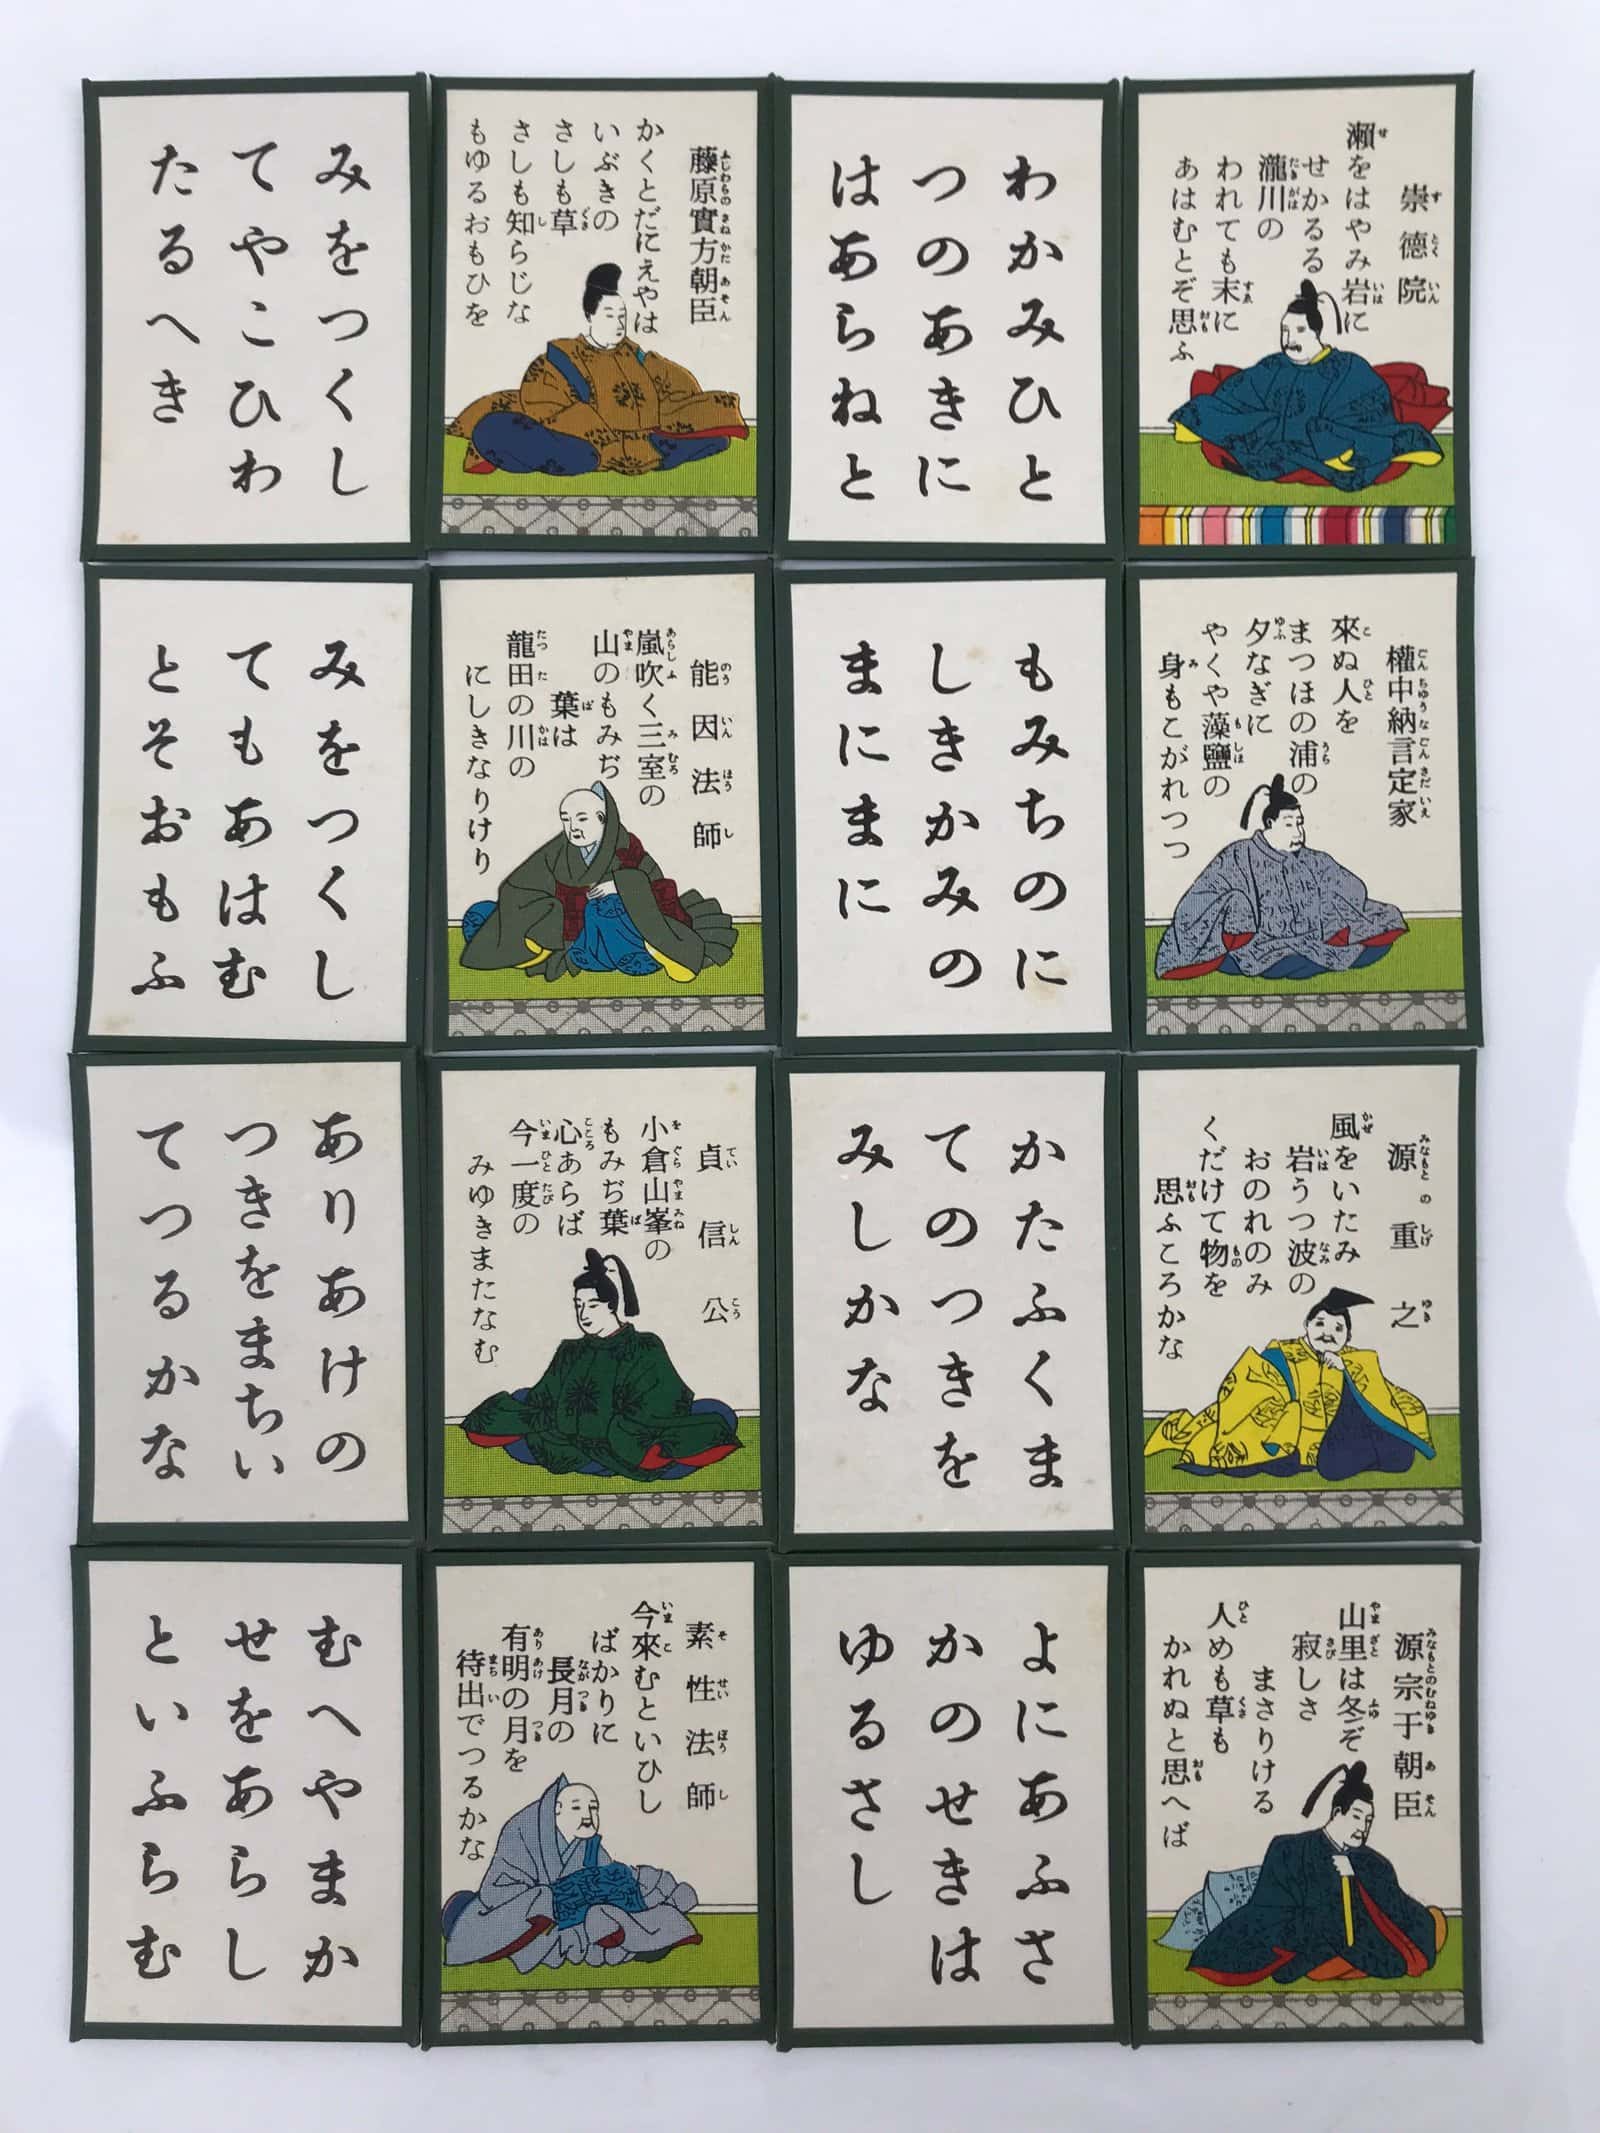 崇德院
瀬をはやみ岩に
せかるる
瀧川の
われても末に
あはむとぞ思ふ
わかみひと
つのあきに
はあらねと
藤原實方朝臣
かくとだにえやは
いぶきの
さしも草
さしも知らじな
もゆるおもひを
みをつくし
てやこひわ
たるへき
權中納言定家
來ぬ人を
まつほの浦の
夕なぎに
やくや藻鹽の
身もこがれつつ
もみちのに
しきかみの
まにまに
能因法師
嵐吹く三室の
山のもみぢ
葉は
龍田の川の
にしきなりけり
みをつくし
てもあはむ
とそおもふ
源重之
風をいたみ
岩うつ波の
おのれのみ
くだけて物を
思ふころかな
かたふくま
てのつきを
みしかな
貞信公
小倉山峯の
もみぢ葉
心あらば
今一度の
みゆきまたなむ
ありあけの
つきをまちい
てつるかな
源宗于朝臣
山里は冬ぞ
寂しさ
まさりける
人めも草も
かれぬと思へば
よにあふさ
かのせきは
ゆるさし
素性法師
今來むといひし
ばかりに
長月の
有明の月を
待出でつるかな
むへやまか
せをあらし
といふらむ